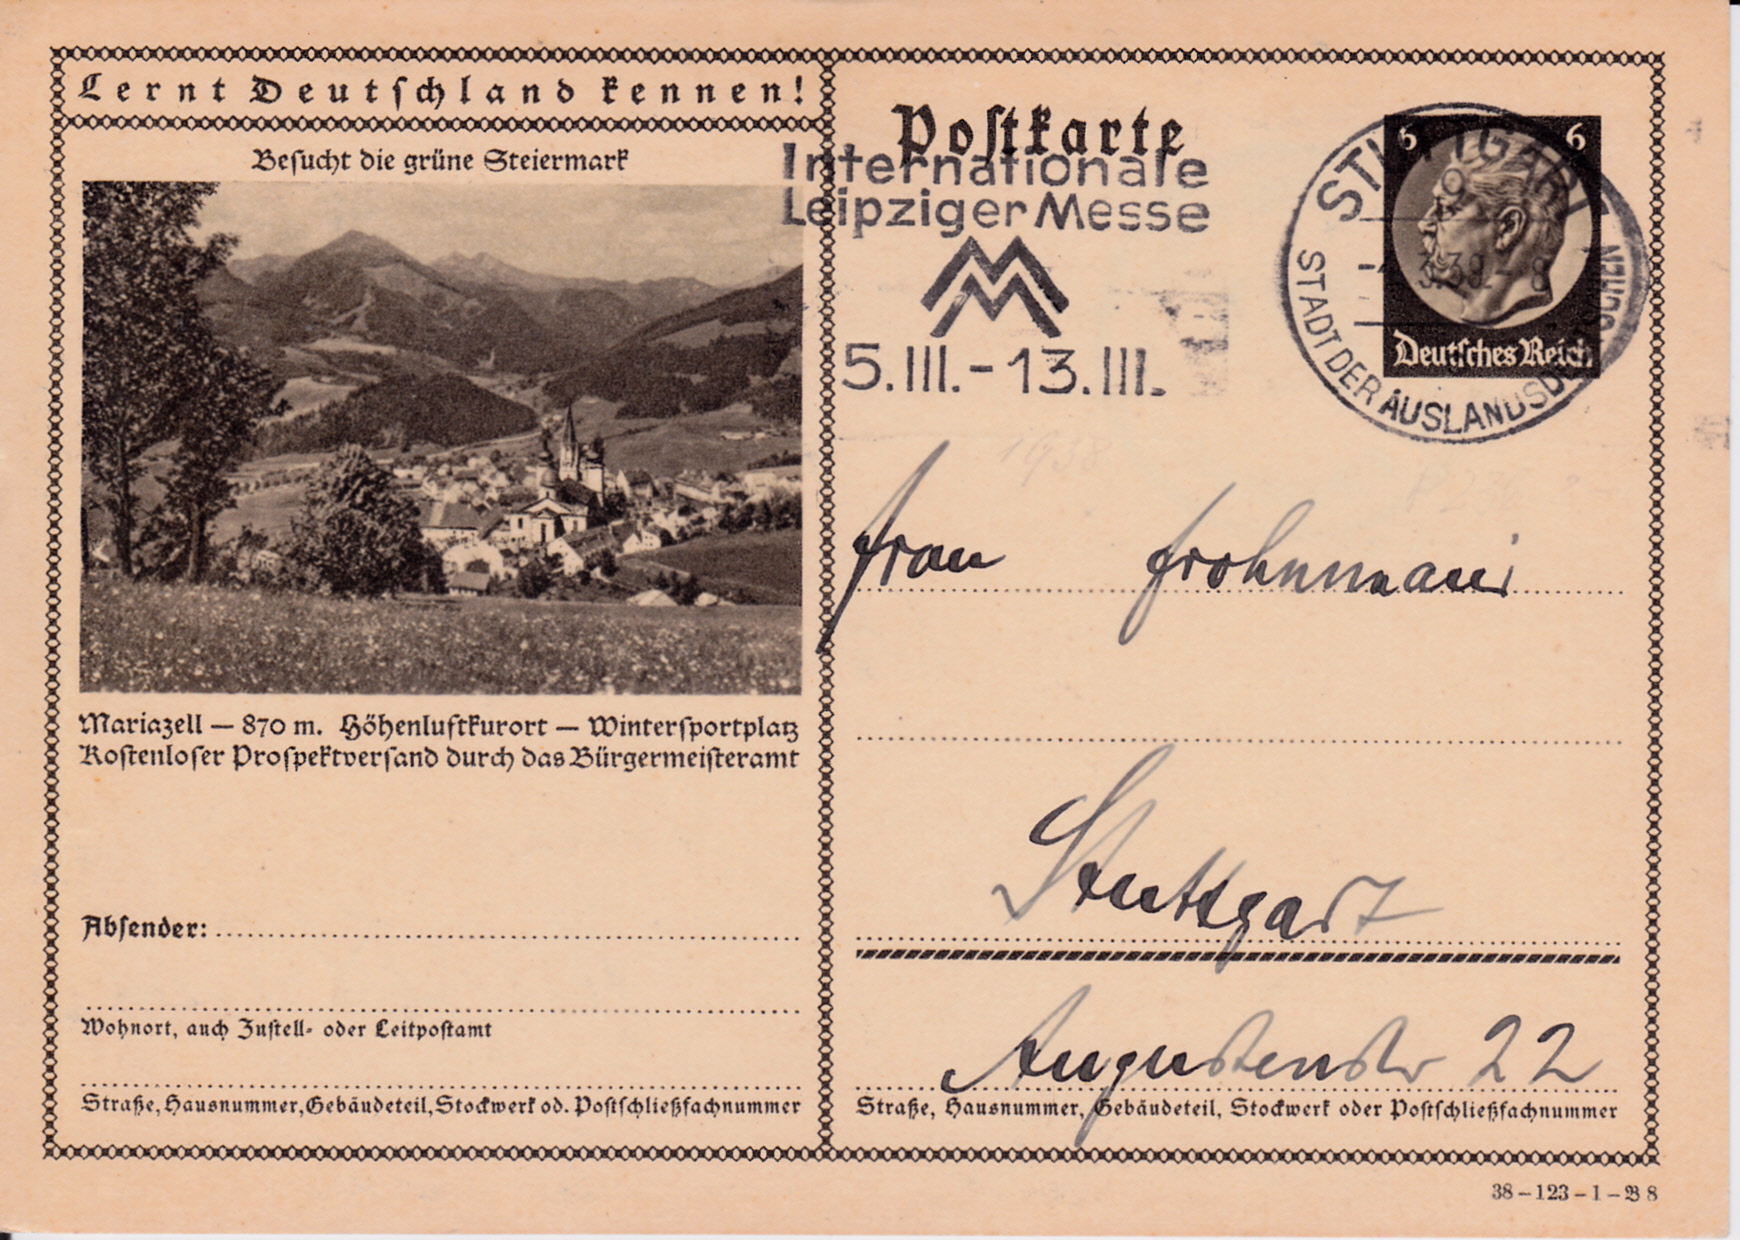 Lernt Deutschland kennen!
Besucht die grüne Steiermark
Mariazell — 870 m. Höhenluftkurort — Wintersportplatz
Kostenloser Prospektversand durch das Bürgermeisteramt
Absender:
Wohnort, auch Zustell- oder Leitpostamt
Straße, Hausnummer, Gebäudeteil, Stockwerk od. Postschließfachnummer
Postkarte
Internationale
Leipziger Messe
5.III.-13.III.
6 6
Deutsches Reich
STUTTGART
3.38.-8
STADT DER AUSLANDSDEUTSCHEN
1938
Frau Frohnmaier
Stuttgart
Augustenstr 22
Straße, Hausnummer, Gebäudeteil, Stockwerk oder Postschließfachnummer
38–123–1–B 8